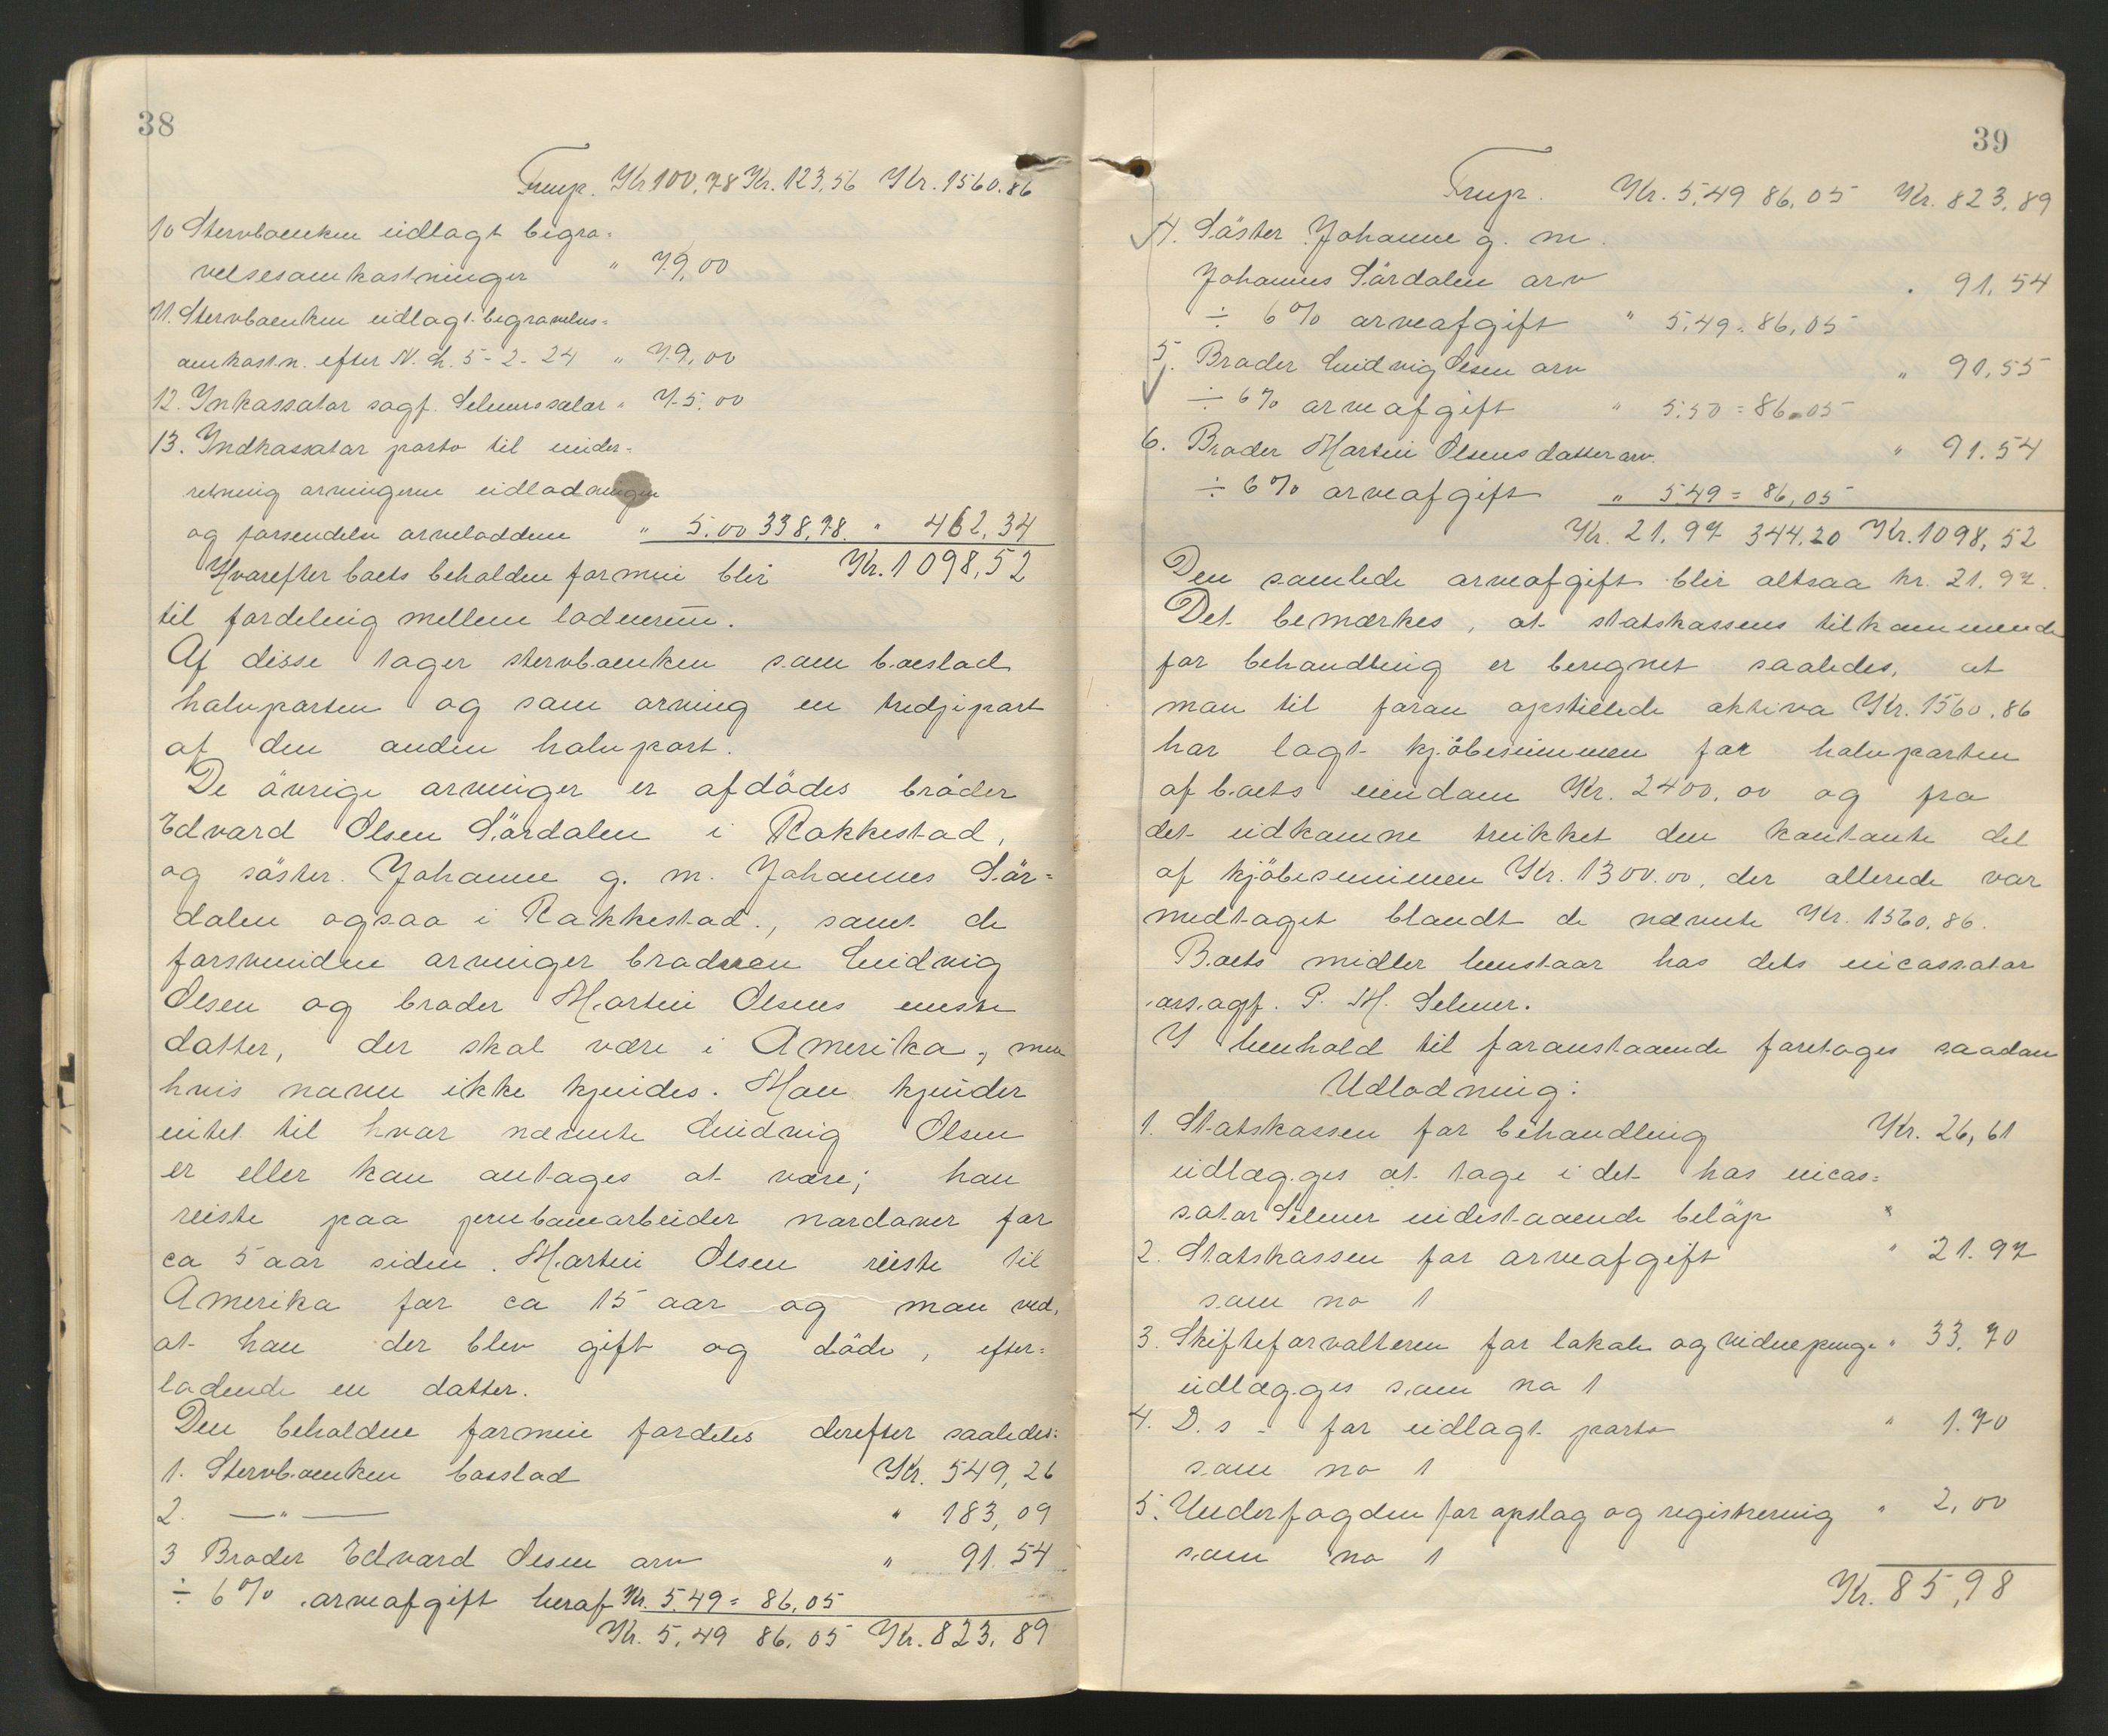 38
Frmp. Kr. 100,78 Kr. 123,56 Kr. 1560.86
10 Stervboenken utlagt begra-
velsesomkostninger " 79,00
11. Stervboenken utlagt begravelses-
omkostn. efter N. L. 5-2-24 " 79,00
12. Inkassator sagf. Selmers salær " 75,00
13. Indkassator porto til under-
retning arvingerne utlodningen
og forsendelse arveloddene " 5.00 338,78. " 462,34
Hvorefter boets beholdne formue blir Kr. 1098,52
til fordeling mellem lodeierne.
Af disse tager stervboenken som boeslod
halvparten og som arving en tredjepart
af den anden halvpart.
De övrige arvinger er afdödes bröder
Edvard Olsen Sördalen i Rakkestad,
og söster Johanne g. m. Johannes Sör-
dalen ogsaa i Rakkestad., samt de
forsvundne arvinger broderen Ludvig
Olsen og broder Martin Olsens eneste
datter, der skal være i Amerika, men
hvis navn ikke kjendes. Man kjender
intet til hvor nævnte Ludvig Olsen
er eller kan antages at være; han
reiste paa jernbanearbeider nordover for
ca 5 aar siden. Martin Olsen reiste til
Amerika for ca 15 aar og man ved,
at han der blev gift og döde, efter-
ladende en datter.
Den beholdne formue fordeles derefter saaledes:
1. Stervboenken boeslod Kr. 549,26
2. —"— " 183,09
3 Broder Edvard Olsen arv " 91.54
÷ 6% arveafgift heraf Kr. 5.49 = 86,05
Kr. 5,49 86.05 Kr. 823.89
39
Frmp. Kr. 5,49 86,05 Kr. 823,89
4. Söster Johanne g. m.
Johannes Sördalen arv " 91.54
÷ 6% arveafgift " 5,49 = 86,05
5. Broder Ludvig Olsen arv " 91,55
÷ 6% arveafgift " 5.50 = 86.05
6. Broder Martin Olsens datter arv. " 91.54
÷ 6% arveafgift " 5.49 = 86,05
Kr. 21.97 344.20 Kr. 1098,52
Den samlede arveafgift blir altsaa kr. 21.97.
Det bemærkes, at statskassens tilkommende
for behandling er beregnet saaledes, at
man til foran opstillede aktiva Kr. 1560.86
har lagt kjöbesummen for halvparten
af boets eiendom Kr. 2400,00 og fra
det utkomne trukket den kontante del
af kjöbesummen Kr. 1300.00, der allerede var
medtaget blandt de nævnte Kr. 1560.86.
Boets midler henstaar hos dets incassator
o.r.sagf. P. M. Selmer.
I henhold til foranstaaende foretages saadan
Udlodning:
1. Statskassen for behandling Kr. 26,61
utlægges at tage i det hos incas-
sator Selmer indestaaende belöp "
2. Statskassen for arveafgift " 21.97
som no 1
3. Skifteforvalteren for lokale og vidnepenge " 33,70
utlægges som no 1
4. D. s - for utlagt porto " 1.70
som no 1
5. Underfogden for opslag og registrering " 2,00
som no 1
Kr. 85,98